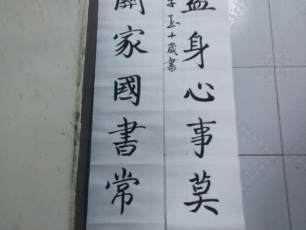 益身心事莫
十歲書
關家國書常